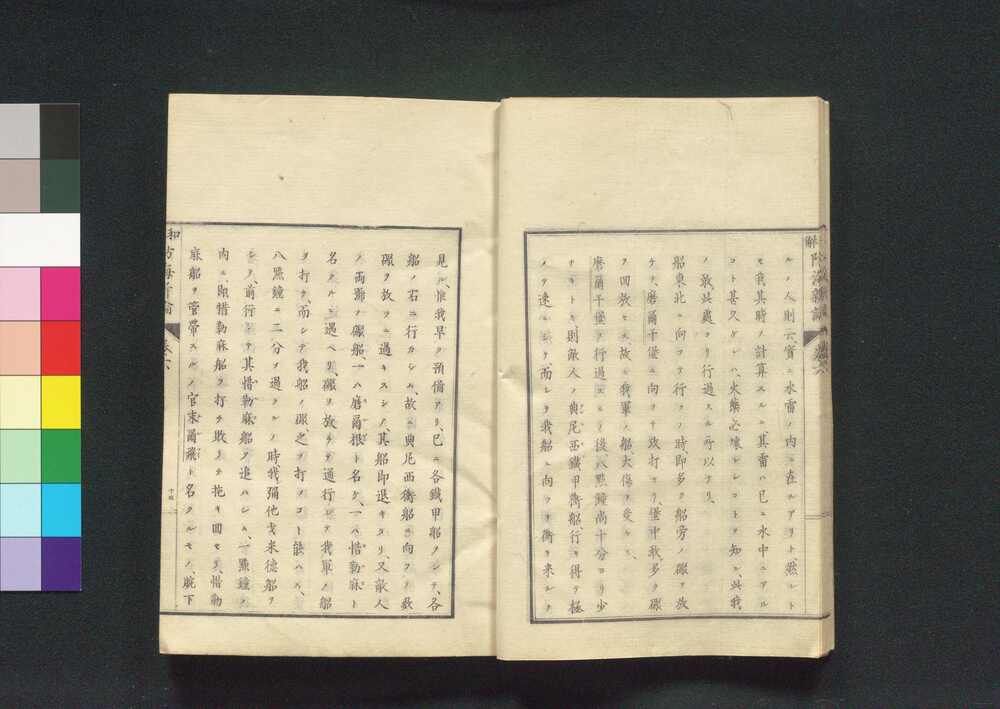 ルノ人則云實ニ水雷ノ内ニ在ルアリト、然レト
モ我其時ノ計算スルニ其雷ハ已ニ水中ニアル
コト甚久ケレハ、火藥必壞レシコトヲ知ル、此我
ノ敢此處ヲリ行過スル所以ナリ、
船東北ニ向フテ行クノ時、即多ク船旁ノ礮ヲ放
ケテ、磨爾干堡ニ向テ攻打セリ、堡中我多ク礮
ヲ回放セス、故ニ我軍ノ船、大傷ヲ受ケス、
磨爾干堡ヲ行過スルノ後、八點鐘尚十分ヨリ少
ナキトキ則敵人ノ典尼西鐵甲衝船行キ得テ極
メテ速ニシテ、而シテ我船ニ向フテ衝キ來ルヲ
見ル、惟我早ク預備アリ、已ニ各鐵甲船ヲシテ、各
船ノ右ニ行カシム、故ニ典尼西衝船ニ向フテ數
礮ヲ放ツニ過キスシテ、其船即退キタリ、又敵人
ノ兩號ノ礮船、一ハ磨爾根ト名ケ、一ハ惜勒麻ト
名クルニ遇ヘリ、礮ヲ放チテ通行シテ我軍ノ船
ヲ打テ、而シテ我船ノ礮、之ヲ打ツコト能ハス、
八點鐘ニ二分ヲ過クルノ時、我彌他戈米德船ヲ
シテ、前行シテ其惜勒麻船ヲ追ハシム、一點鐘ノ
内ニ、即惜勒麻船ヲ打チ敗リテ拖キ回セリ、惜勒
麻船ヲ管帶スルノ官末爾飛ト名クルモノ、腿下
卷六